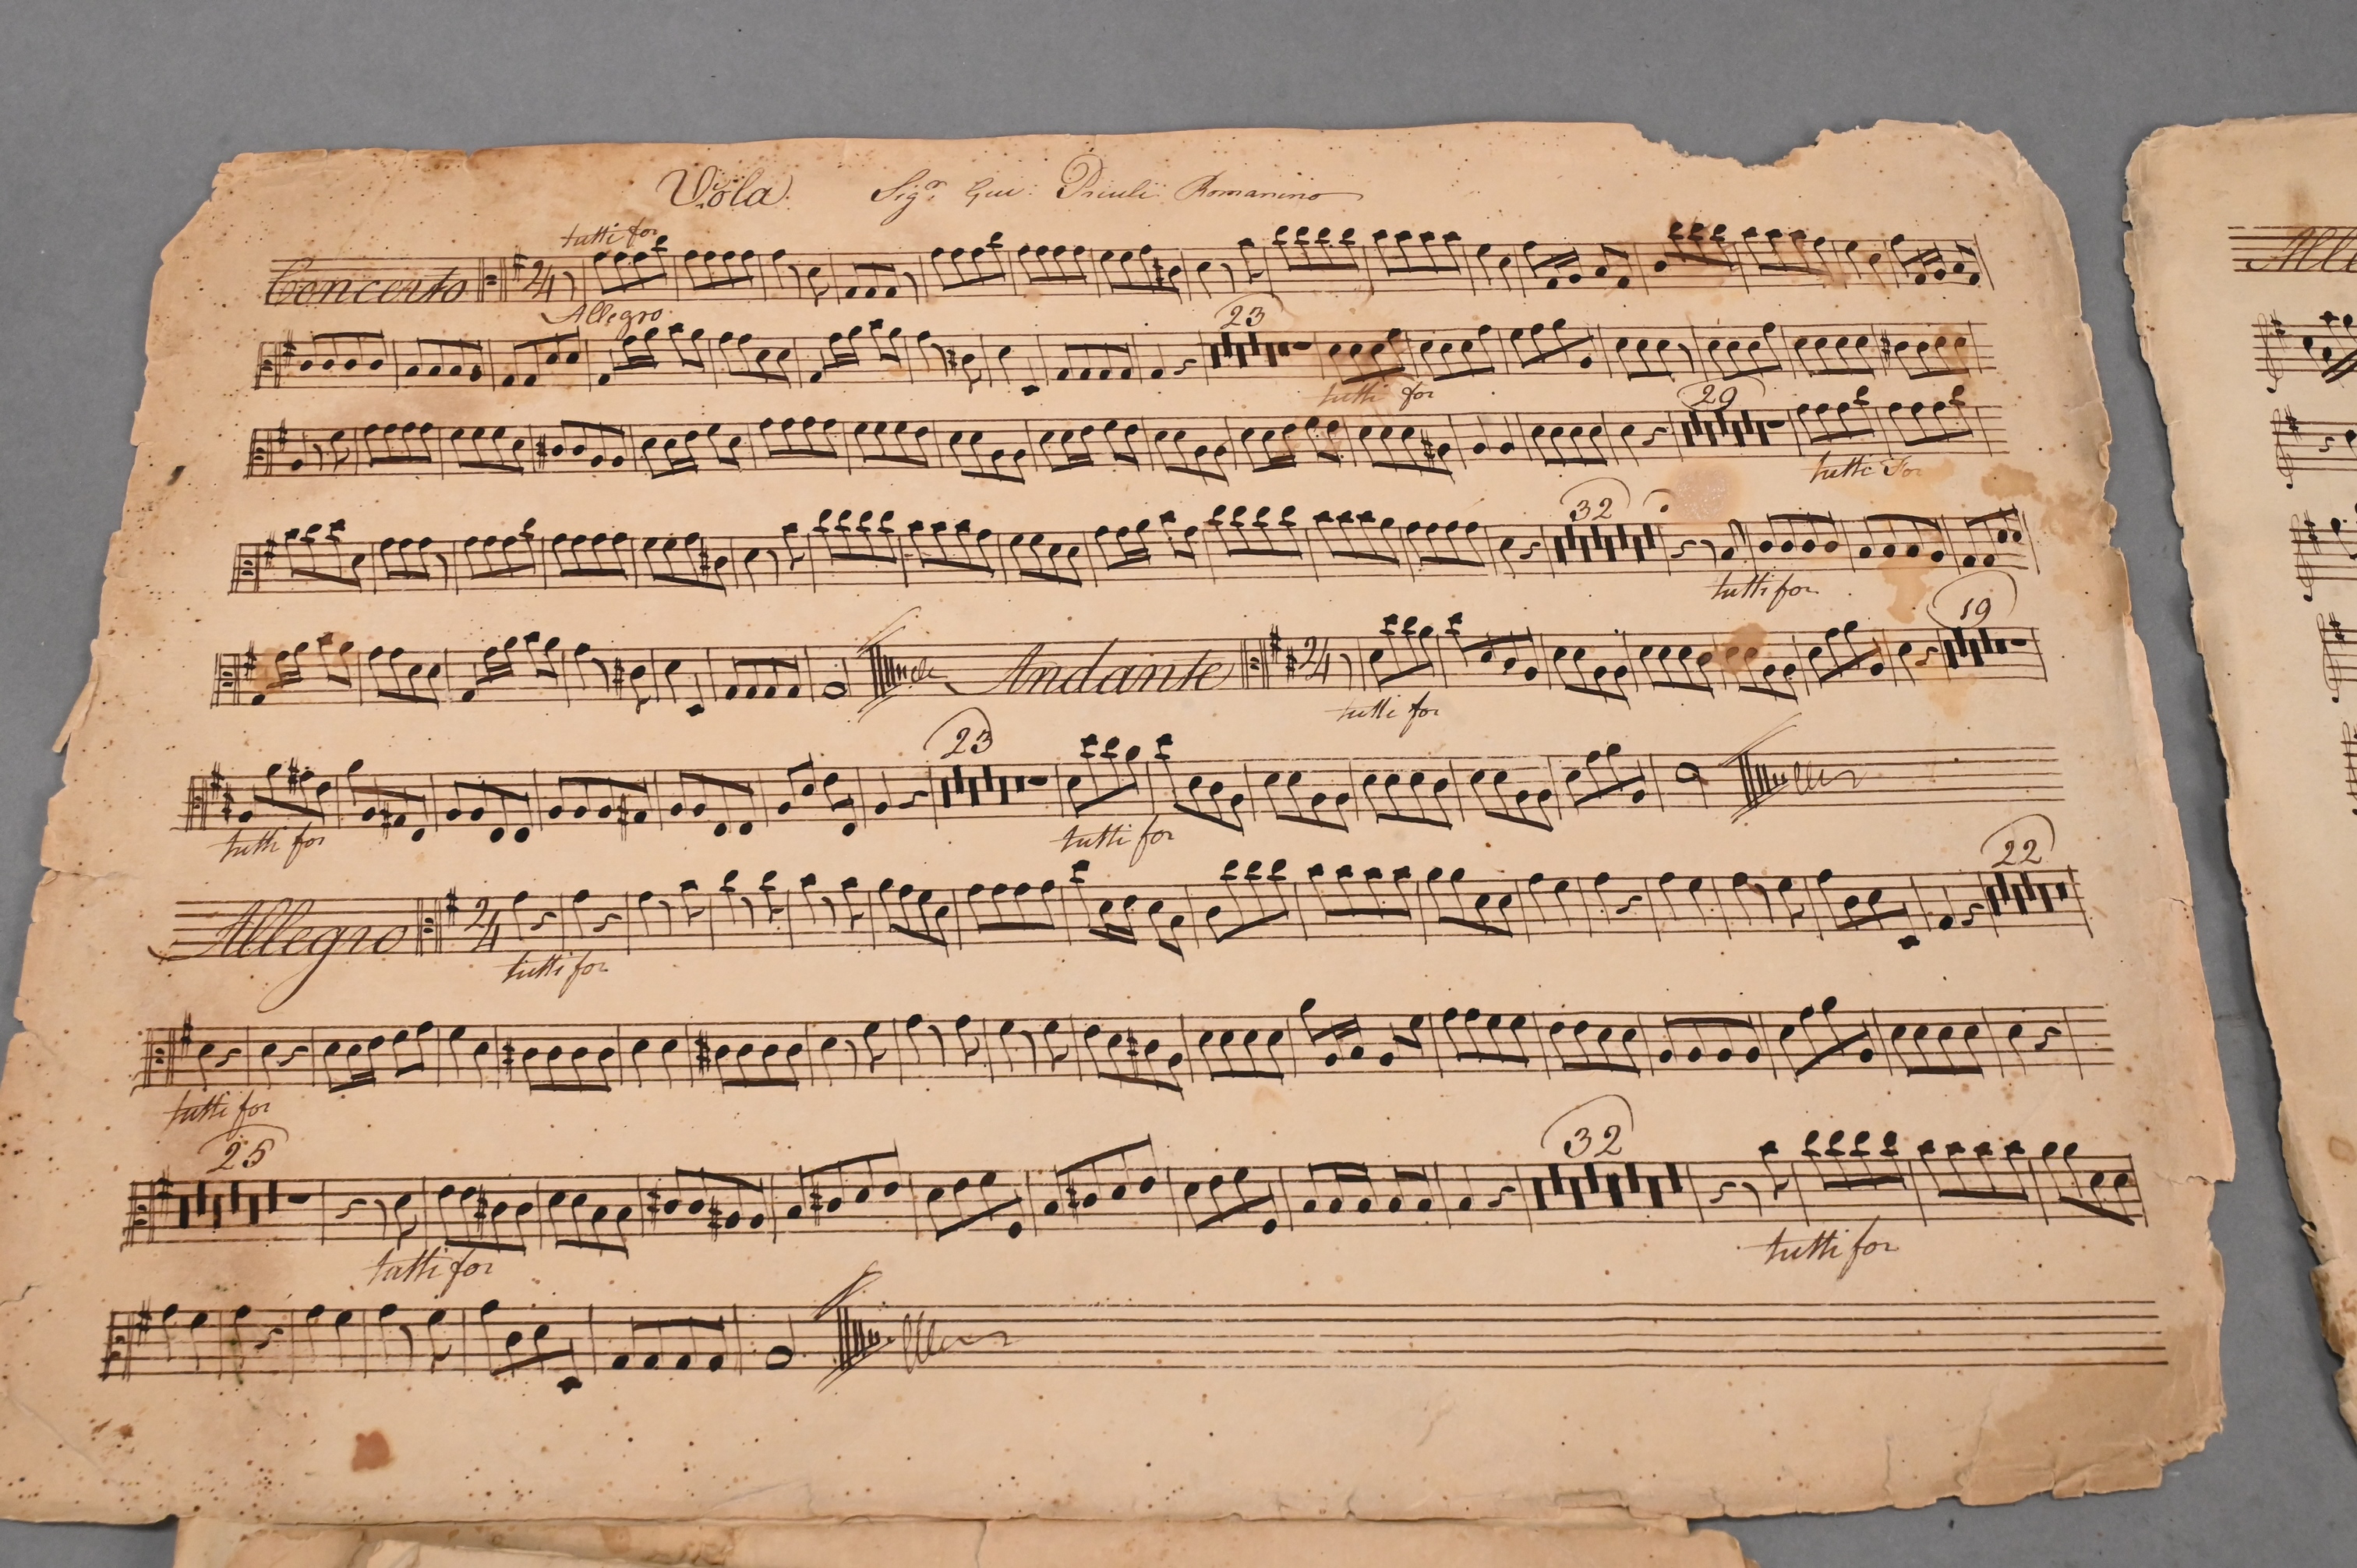 Viola. Sigr. Giu: Priuli Romanino
tutti for
Concerto 2/4
Allegro
23
tutti for
29
tutti For
32
tutti for
19
Andante 2/4
tutti for
23
tutti for tutti for
22
Allegro 2/4
tutti for
tutti for
25 32
tutti for tutti for